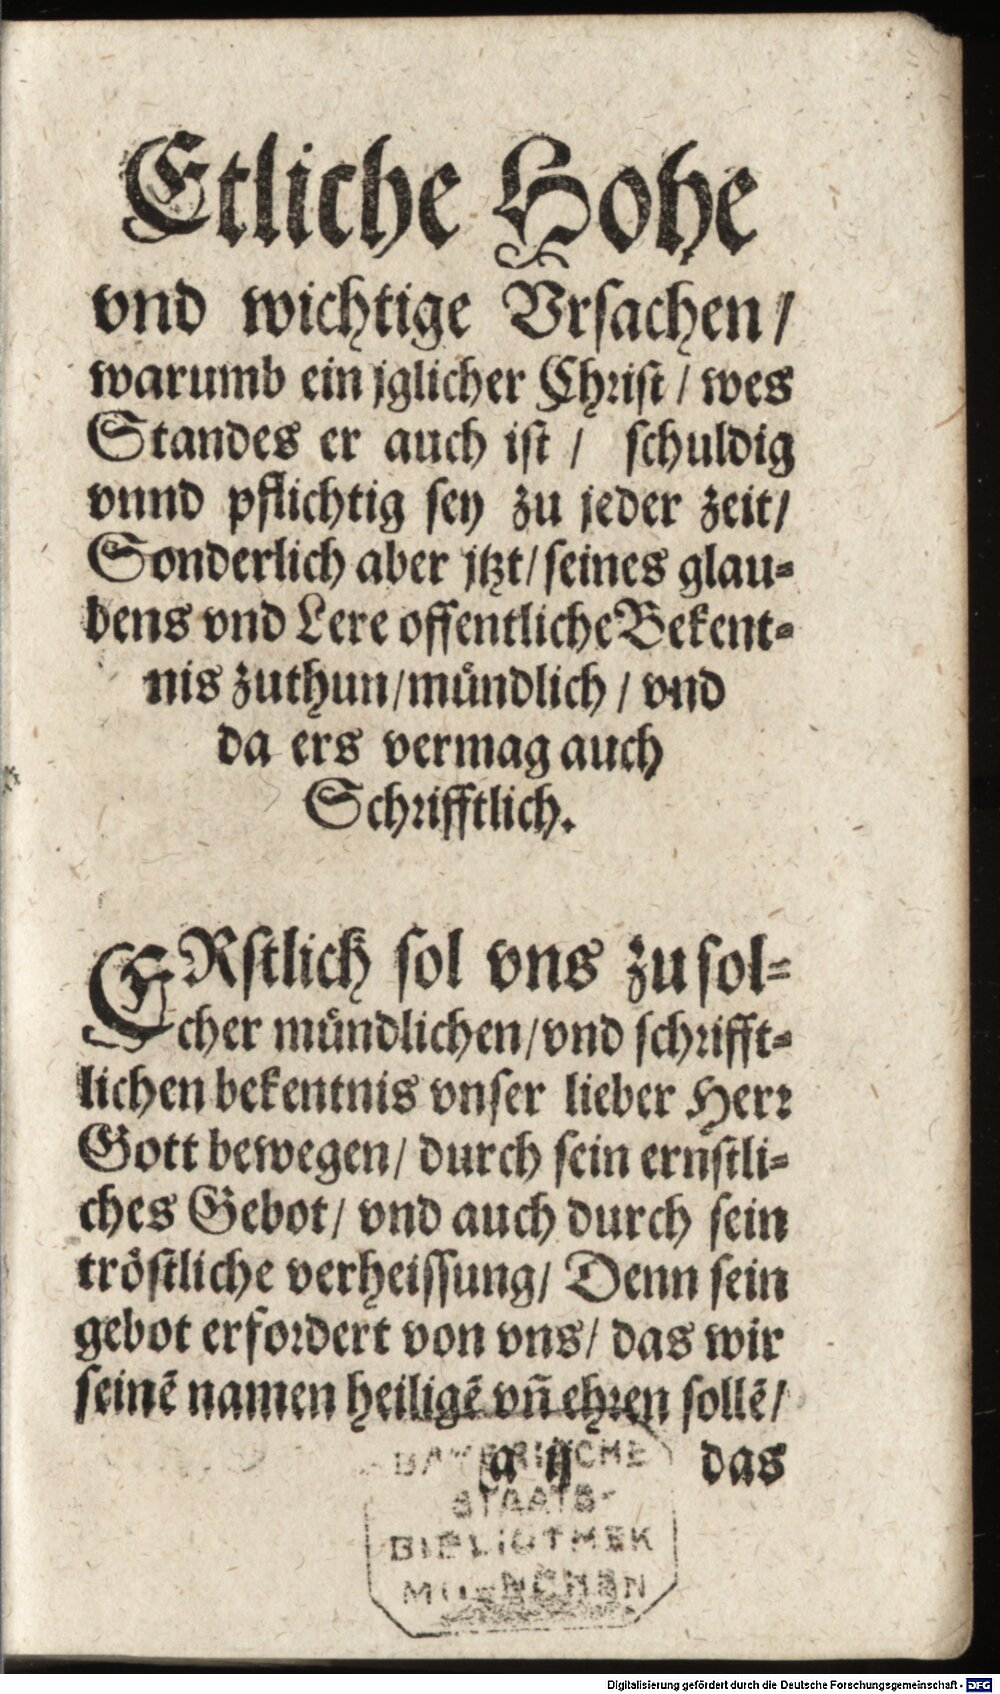 Etliche Hohe
vnd wichtige Vrsachen/
warumb ein jglicher Christ/ wes
Standes er auch ist/ schuldig
vnnd pflichtig sey zu jeder zeit/
Sonderlich aber jtzt/ seines glau-
bens vnd Lere offentliche Bekent-
nis zuthun/ mündlich/ vnd
da ers vermag auch
Schrifftlich.
ERstlich sol vns zu sol-
cher mündlichen/ vnd schrifft-
lichen bekentnis vnser lieber Herr
Gott bewegen/ durch sein ernstli-
ches Gebot/ vnd auch durch sein
tröstliche verheissung/ Denn sein
gebot erfordert von vns/ das wir
seinē namen heiligē vñ ehren sollē/
a ij das
BAYERISCHE
STAATS-
BIBLIOTHEK
MUENCHEN
Digitalisierung gefördert durch die Deutsche Forschungsgemeinschaft - DFG